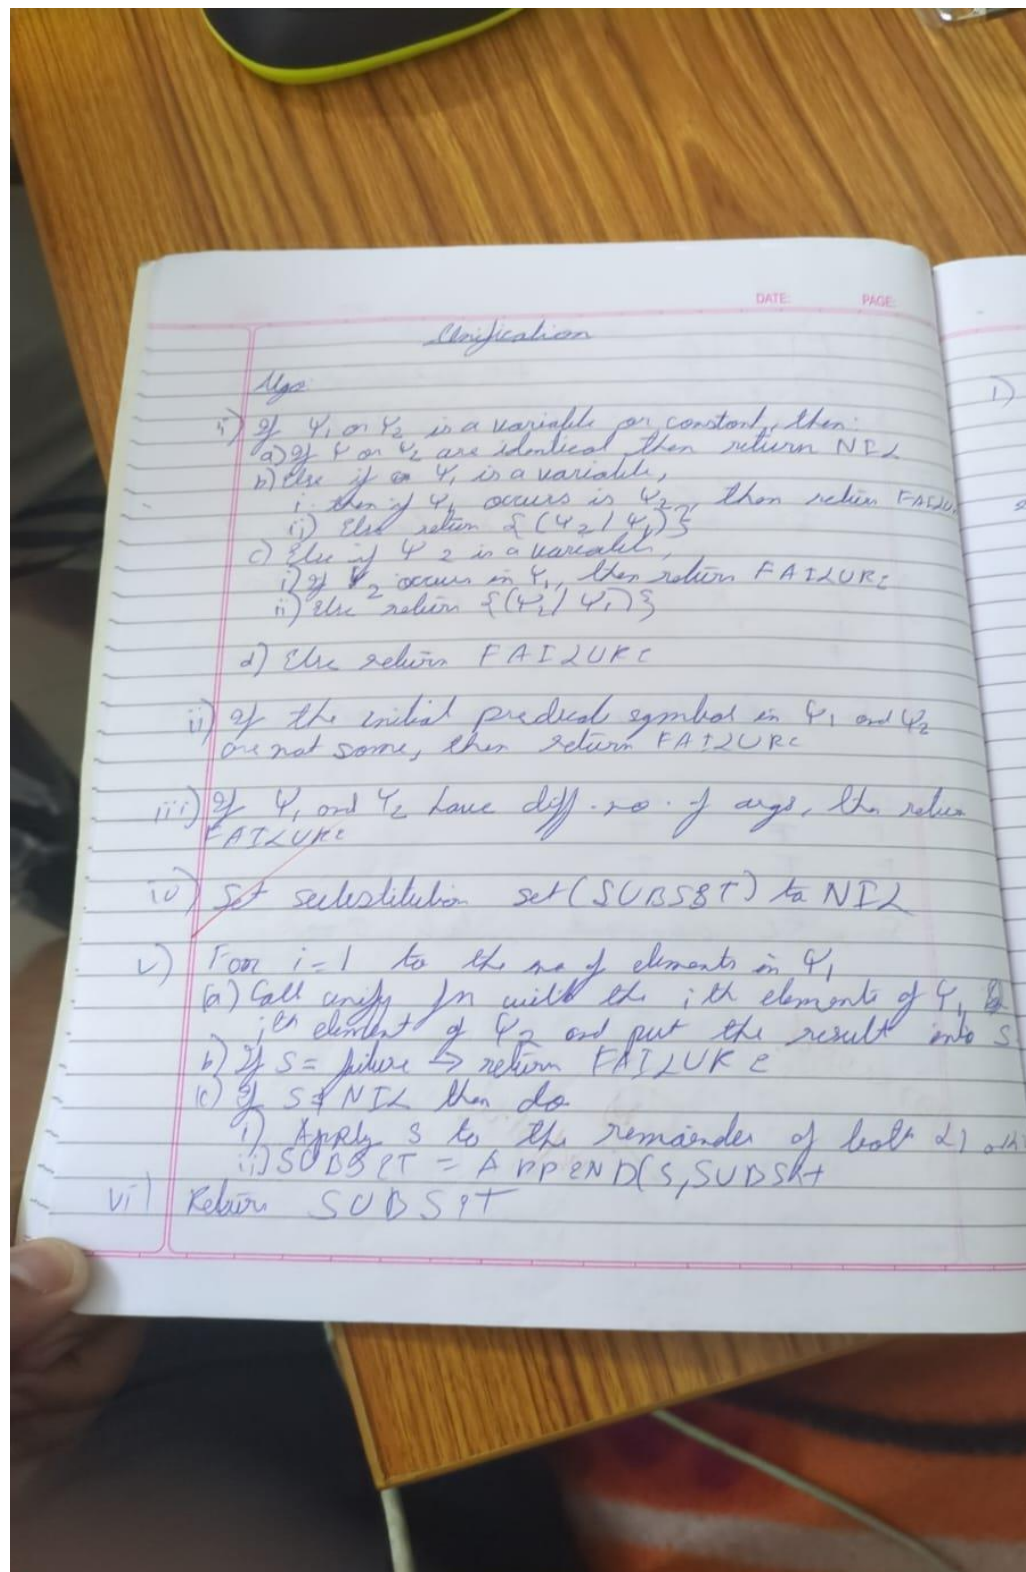 DATE: PAGE:
Unification
Algo:
i) If Ψ1 or Ψ2 is a variable or constant, then:
a) If Ψ or Ψ2 are identical then return NIL
b) Else if Ψ1 is a variable,
i. then if Ψ1 occurs is Ψ2, then return FAILU
ii) Else return {(Ψ2 / Ψ1)}
c) Else if Ψ2 is a variable,
i) If Ψ2 occurs in Ψ1, then return FAILURE
ii) Else return {(Ψ2 / Ψ1)}
d) Else return FAILURE
ii) If the initial predicat symbol in Ψ1 and Ψ2
are not same, then return FAILURE
iii) If Ψ1 and Ψ2 have diff. no. of args, the return
FAILURE
iv) Set substitution set (SUBSET) to NIL
v) For i=1 to the no of elements in Ψ1
(a) Call unify fn with the ith elements of Ψ1 &
ith element of Ψ2 and put the result into S
b) If S = failure → return FAILURE
(c) If S ≠ NIL then do
i) Apply S to the remainder of both L1
ii) SUBSET = APPEND(S, SUBSET
vi) Return SUBSET
1)